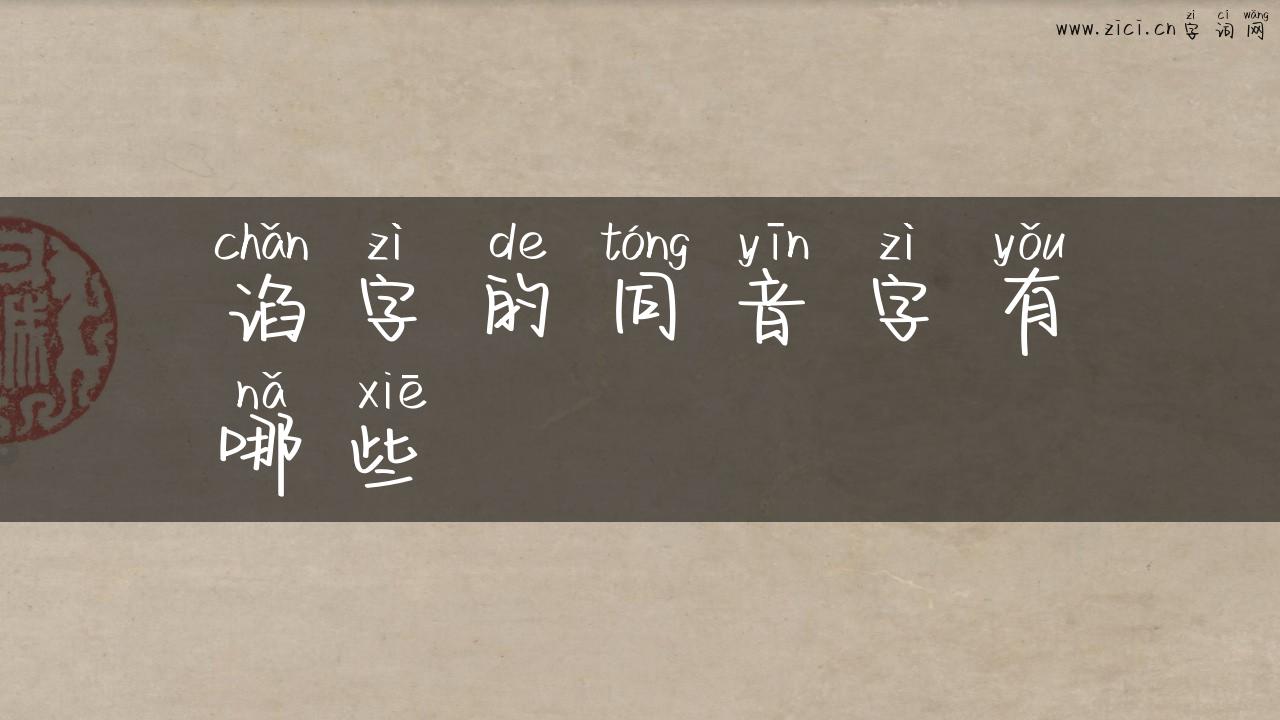 zì cí wǎng
www.zici.cn 字词网
chǎn zì de tóng yīn zì yǒu
谄字的同音字有
nǎ xiē
哪些